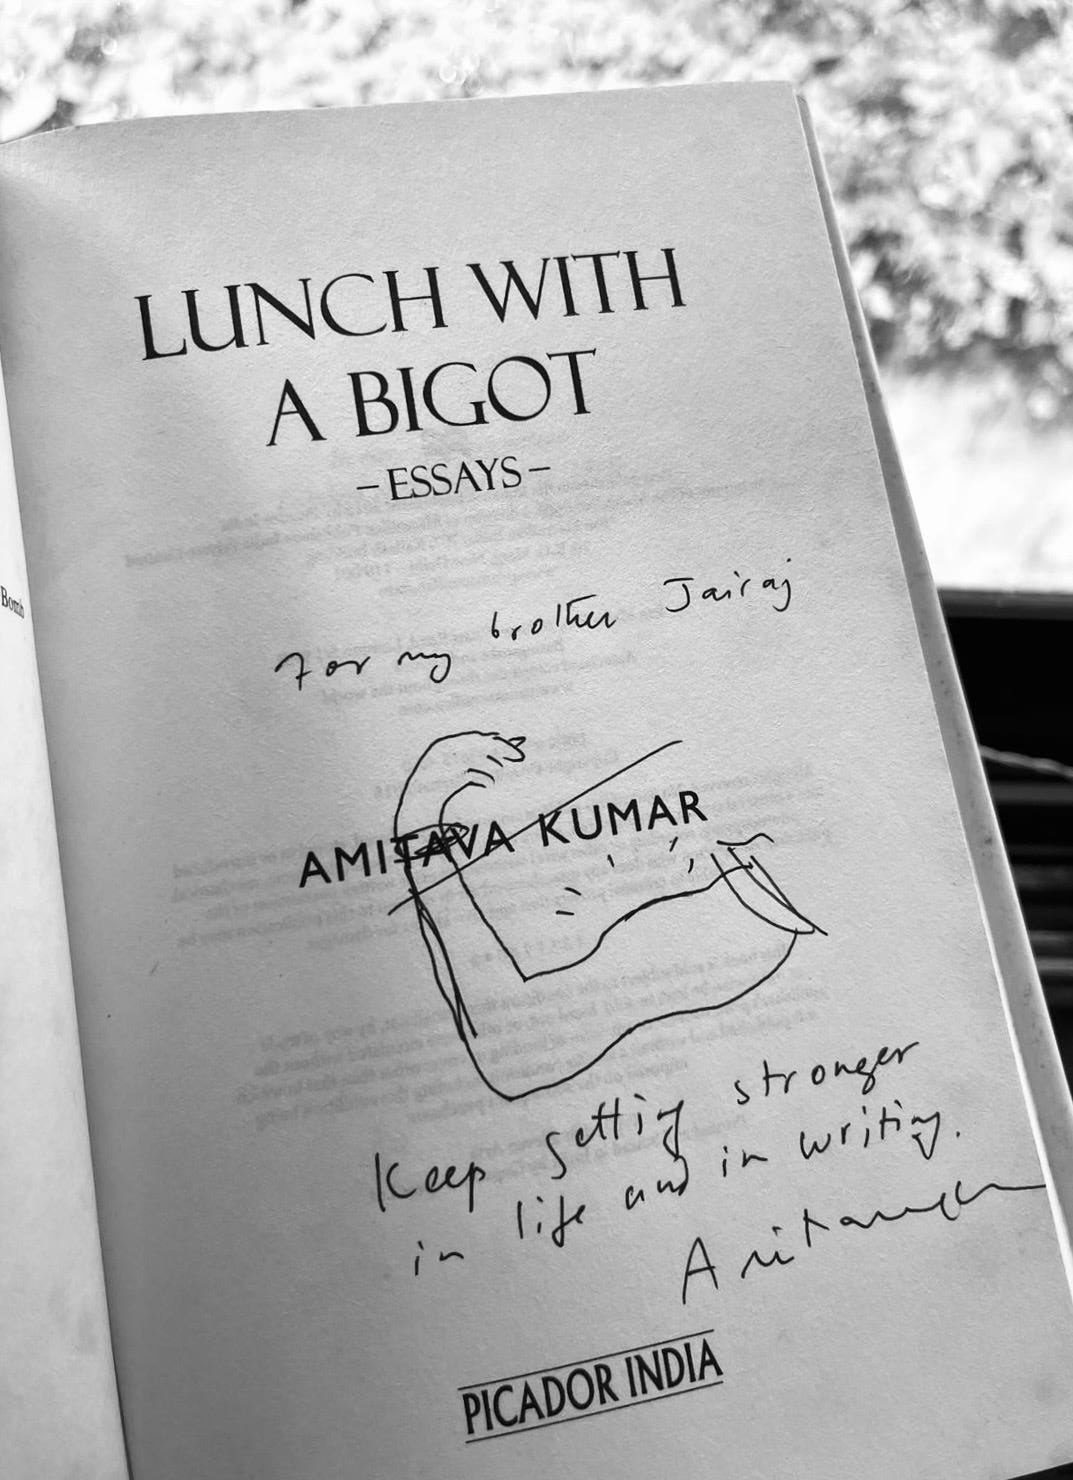 LUNCH WITH
A BIGOT
– ESSAYS –
Bomb
For my brother Jairaj
AMITAVA KUMAR
Keep getting stronger
in life and in writing.
Amitava
PICADOR INDIA